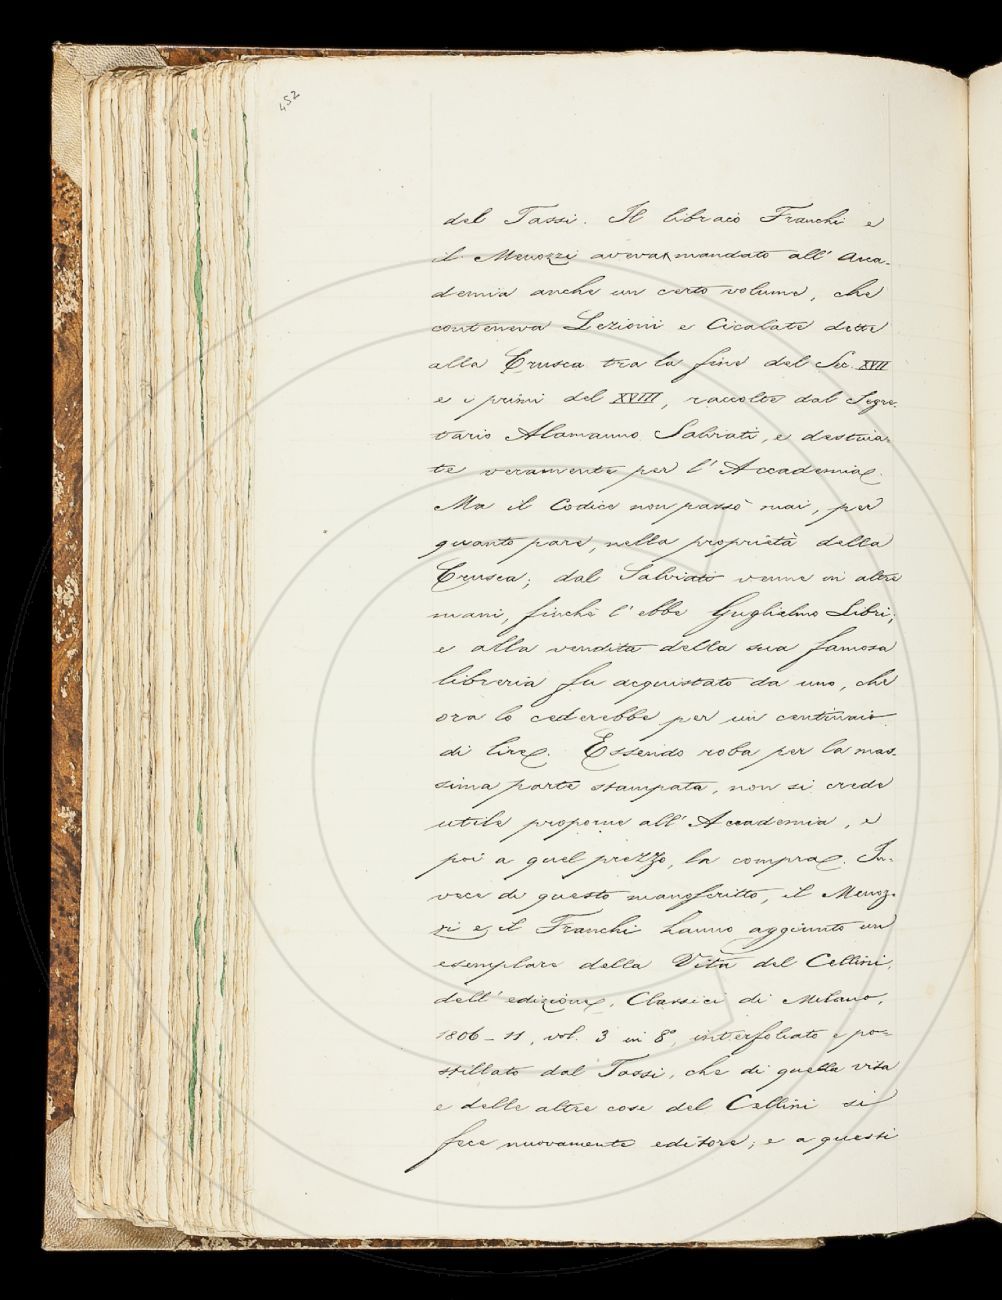 452
del Tassi. Il libraio Franchi e
il Menozzi aveva mandato all' Acca-
demia anche un certo volume, che
conteneva Lezioni e Cicalate dette
alla Crusca tra la fine del Sec. XVII
e i primi del XVIII, raccolte dal Segre-
tario Alamanno Salviati, e destina-
te veramente per l' Accademia.
Ma il Codice non passò mai, per
quanto pare, nella proprietà della
Crusca; dal Salviati venne in altre
mani, finchè l' ebbe Guglielmo Libri;
e alla vendita della sua famosa
libreria fu acquistato da uno, che
ora lo cederebbe per un centinaio
di lire. Essendo roba per la mas-
sima parte stampata, non si crede
utile proporne all' Accademia, e
poi a quel prezzo, la compra. In-
vece di questo manoscritto, il Menoz-
zi e il Franchi hanno aggiunto un
esemplare della Vita del Cellini,
dell' edizione, Classici di Milano,
1806-11, vol. 3 in 8°, interfoliato e po-
stillato dal Tassi, che di quella vita
e delle altre cose del Cellini si
fece nuovamente editore; e a questi